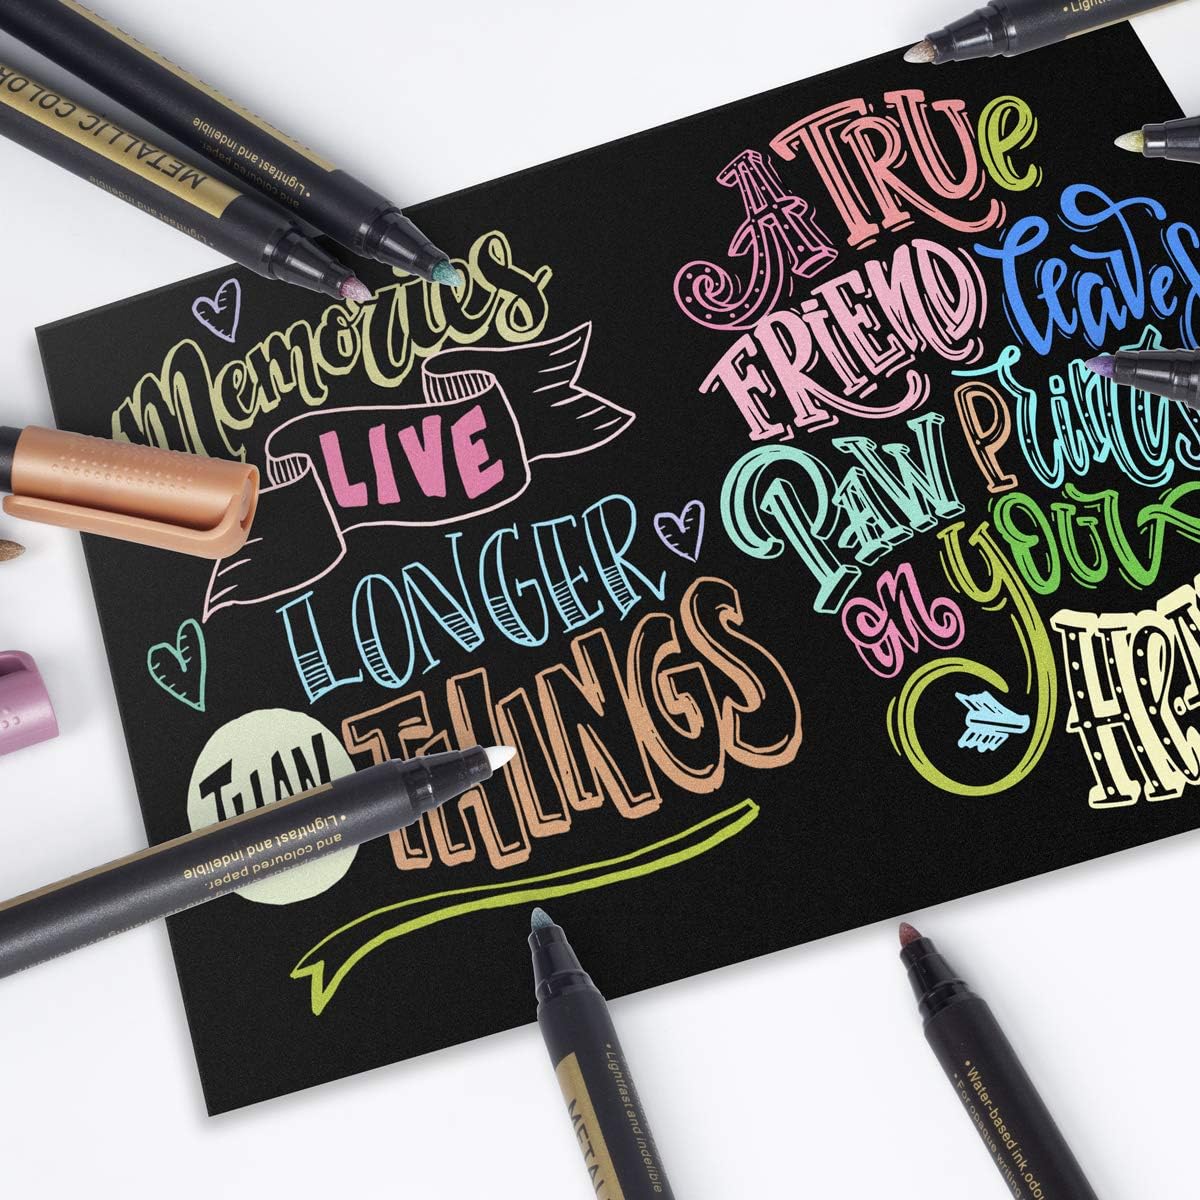 Memories
LIVE
LONGER
THAN
THINGS
A TRUE
FRIEND leaves
PAW PRINTS
on your
HEA
METALLIC COLOR
• Lightfast and indelible
and coloured paper.
• Lightfast and indelible
and coloured paper.
• Lightfast and indelible
METAL
• Water-based ink, odo
• For opaque writing